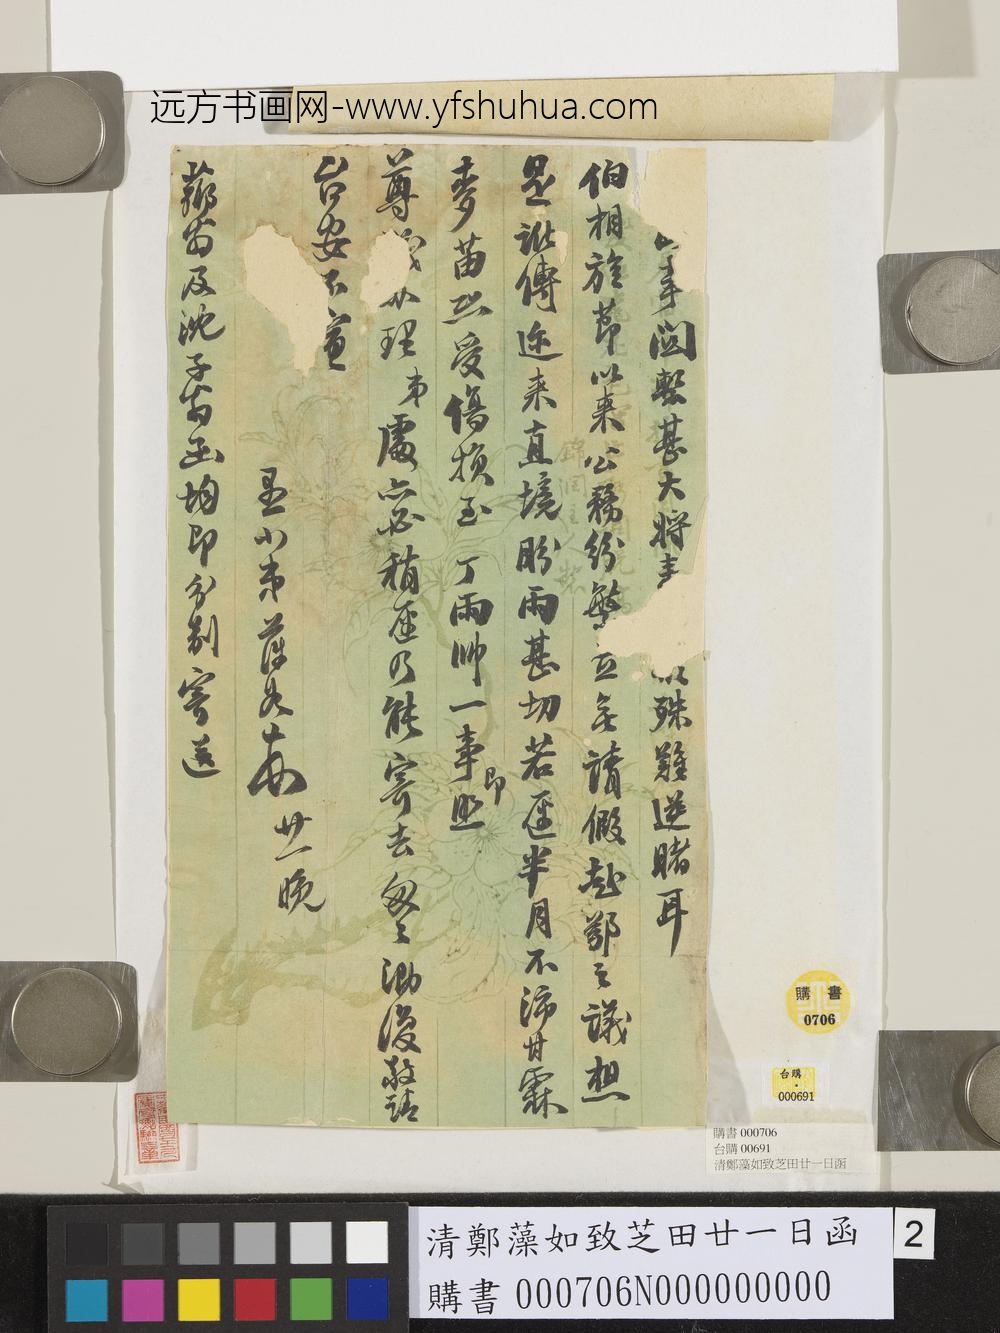 远方书画网-www.yfshuhua.com
事関繫甚大將
殊難逆睹耳
伯相旌節以來公務紛繁並無請假赴鄂之議想
是訛傳近来直境盼雨甚切若逕半月不沛甘霖
麥苗恐受傷損至丁雨帥一事即照
尊
辦理弟處亦必稍遲乃能寄去匆匆泐復敬請
台安不宣
小弟藻如
廿一晚
藹翁及沈子翁函均即分别寄送
購書
0706
台購
000691
購書 000706
台購 00691
清鄭藻如致芝田廿一日函
清鄭藻如致芝田廿一日函
購書 000706N000000000
2